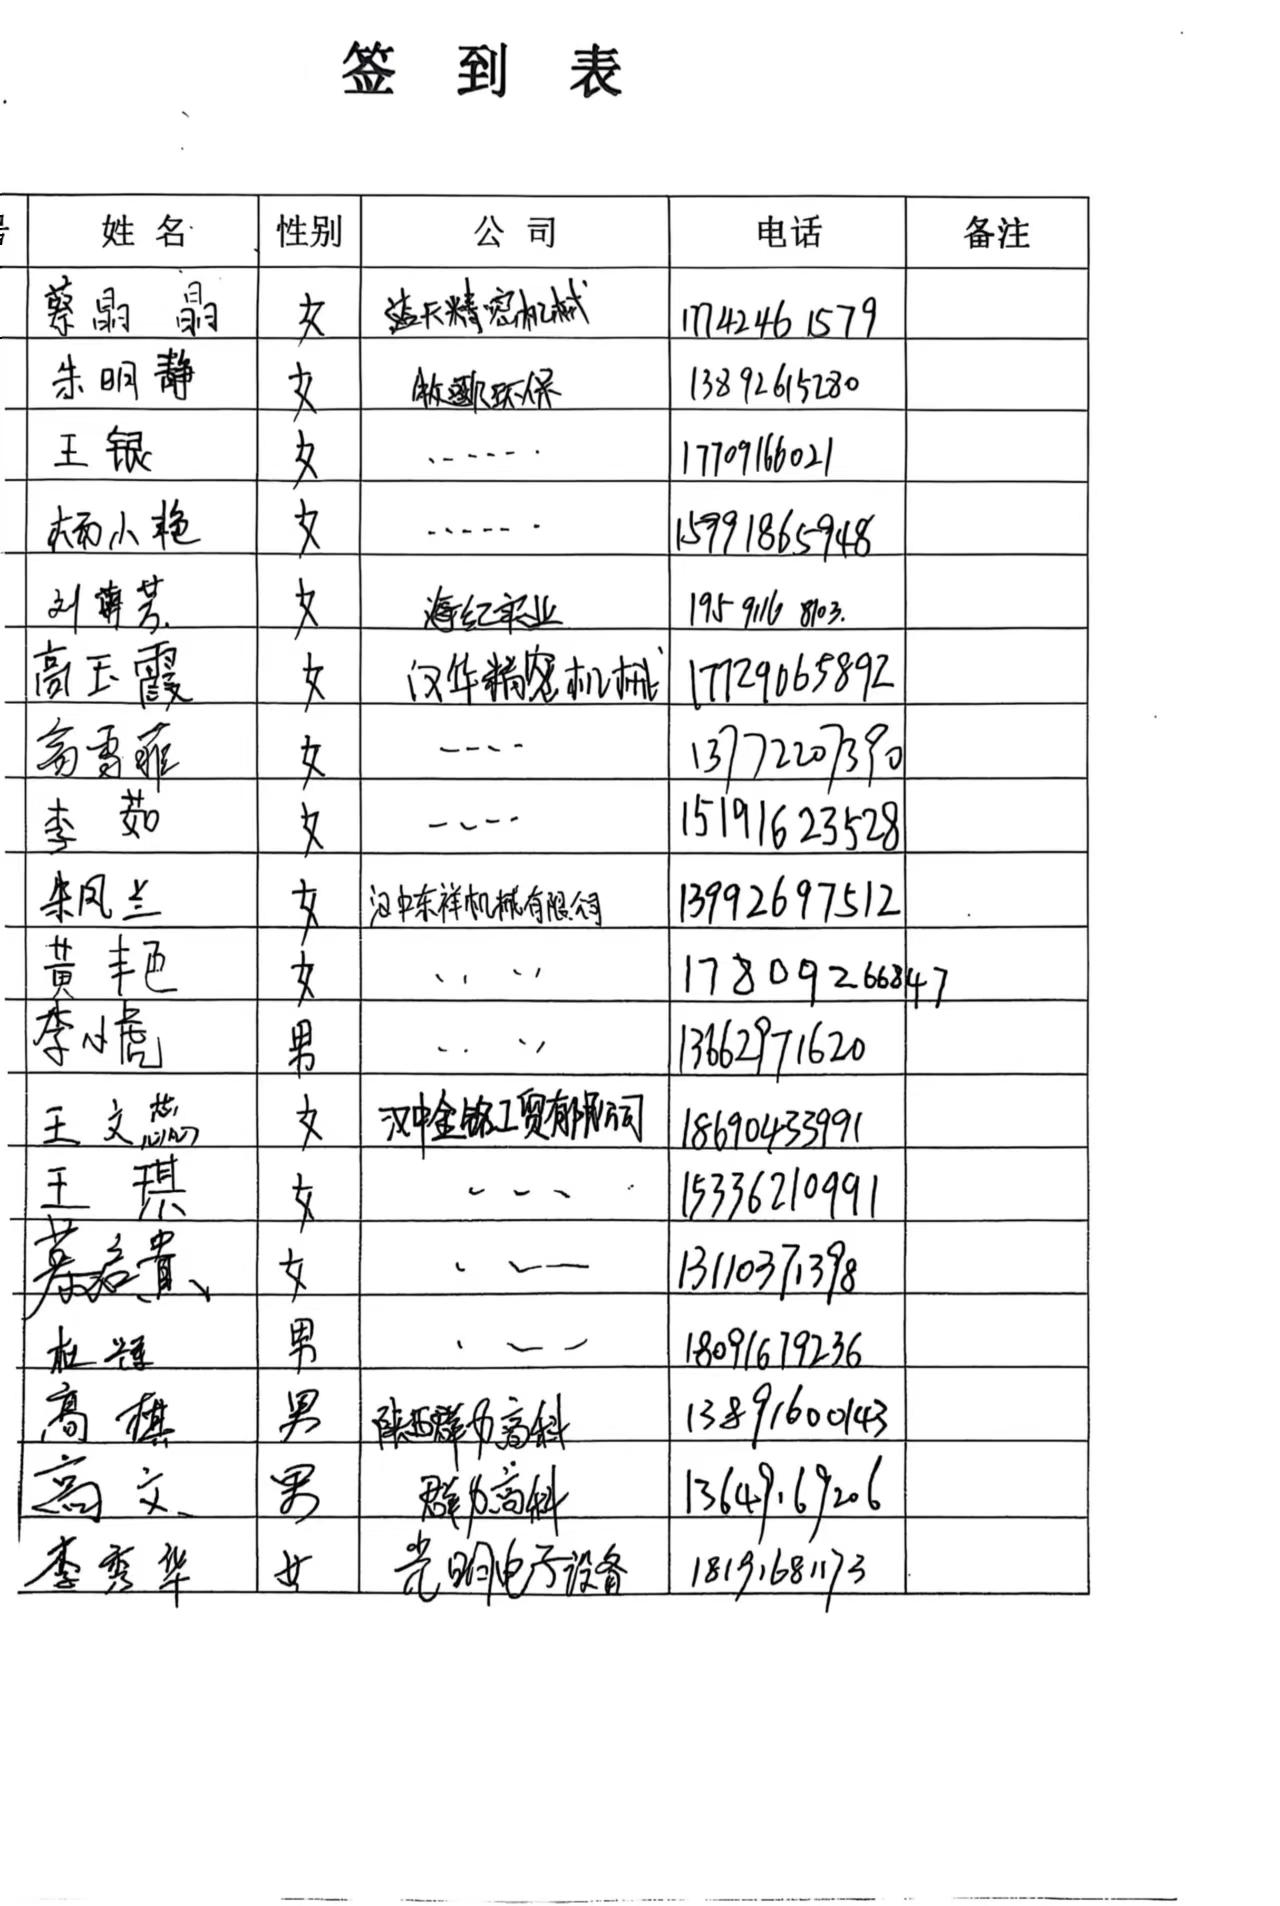 签 到 表
号 姓 名 性别 公 司 电话 备注
蔡晶晶 女 蓝天精密机械 17742461579
朱明静 女 环保 13892615280
王银 女 ------ 17709166021
杨小艳 女 ------ 15991865948
刘 芳. 女 海红实业 19591168103.
高玉霞 女 汉华精密机械 17729065892
高雪菲 女 ---- 13772207390
李茹 女 ---- 15191623528
朱凤兰 女 汉中东祥机械有限公司 13992697512
黄艳 女 〃 〃 17809266847
李小虎 男 〃 〃 13662971620
王文蕊 女 汉中金铭工贸有限公司 18690433991
王琪 女 --- 15336210991
贵 女 --- 13110371398
杜 男 --- 18091679236
高棋 男 陕西群力高科 13891600143
高文 男 群力高科 13649169206
李秀华 女 光明电子设备 18191681173